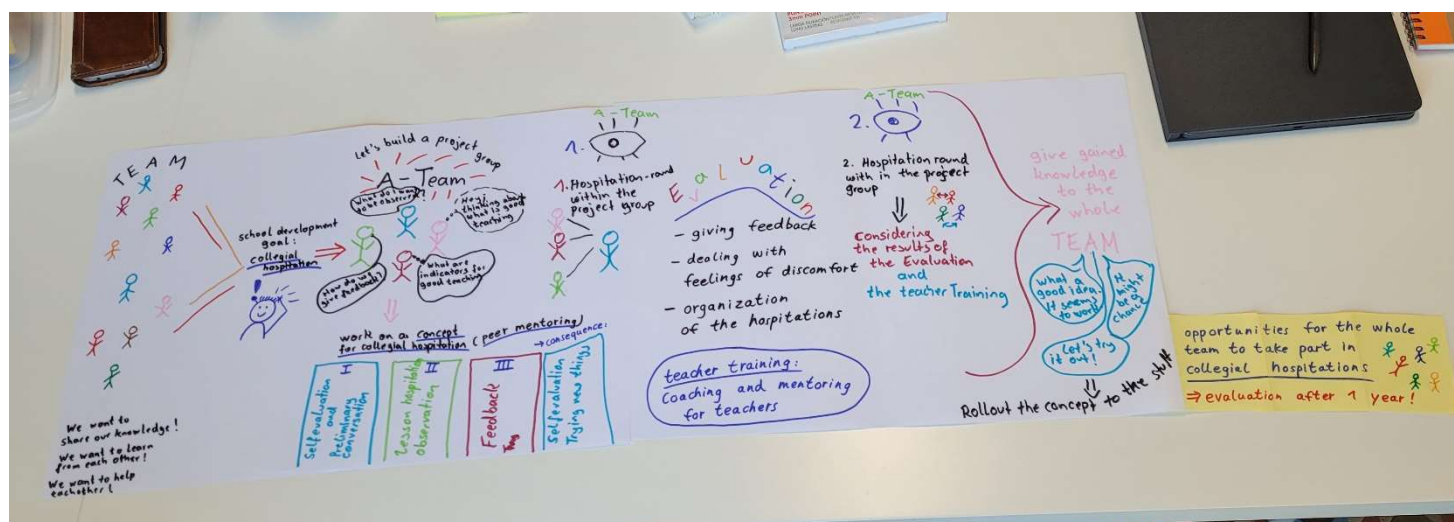 TEAM
We want to
share our knowledge!
We want to learn
from each other!
We want to help
eachother!
school development
goal:
collegial
hospitation
!
Let's build a project
group
A-Team
How do we
give feedback?
Hey,
thinking about
what is good
teaching
What are
indicators for
good teaching
work on a concept
for collegial hospitation (peer mentoring)
→ consequence:
I
Selfevaluation
and
Preliminary
Conversation
II
Lesson hospitation
observation
III
Feedback
Selfevaluation
Trying new things
A-Team
1.
1. Hospitation-round
within the
project group
Evaluation
- giving feedback
- dealing with
feelings of discomfort
- organization
of the hospitations
teacher training:
Coaching and mentoring
for teachers
A-Team
2.
2. Hospitation round
with in the project
group
Considering
the results of
the Evaluation
and
the teacher Training
give gained
knowledge
to the
whole
TEAM
What a
good idea!
It seems
to work
It
might
be a
chance
Let's try
it out!
Rollout the concept to the stuff
opportunities for the whole
team to take part in
collegial hospitations
⇒ evaluation after 1 year!